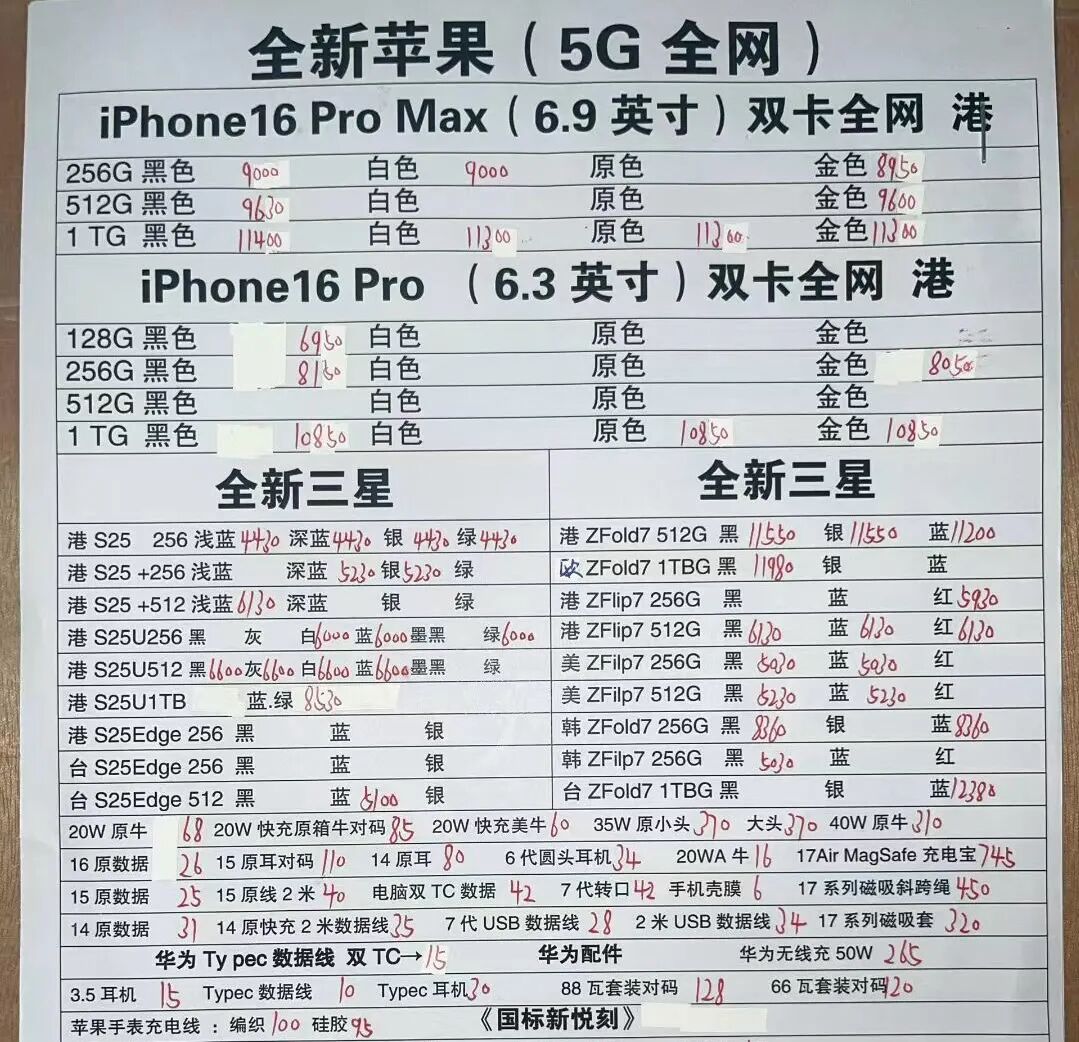 全新苹果（5G 全网）
iPhone16 Pro Max（6.9 英寸）双卡全网 港
256G 黑色 9000 白色 9000 原色 金色 8950
512G 黑色 9630 白色 原色 金色 9600
1 TG 黑色 11400 白色 11300 原色 11300 金色 11300
iPhone16 Pro （6.3 英寸）双卡全网 港
128G 黑色 6950 白色 原色 金色
256G 黑色 8130 白色 原色 金色 8050
512G 黑色 白色 原色 金色
1 TG 黑色 10850 白色 原色 10850 金色 10850
全新三星
港 S25 256 浅蓝 4430 深蓝 4430 银 4430 绿 4430
港 S25 +256 浅蓝 深蓝 5230 银 5230 绿
港 S25 +512 浅蓝 6130 深蓝 银 绿
港 S25U256 黑 灰 白 6000 蓝 6000 墨黑 绿 6000
港 S25U512 黑 6600 灰 6600 白 6600 蓝 6600 墨黑 绿
港 S25U1TB 蓝.绿 8530
港 S25Edge 256 黑 蓝 银
台 S25Edge 256 黑 蓝 银
台 S25Edge 512 黑 蓝 5100 银
全新三星
港 ZFold7 512G 黑 11550 银 11550 蓝 11200
欧 ZFold7 1TBG 黑 11980 银 蓝
港 ZFlip7 256G 黑 蓝 红 5930
港 ZFlip7 512G 黑 6130 蓝 6130 红 6130
美 ZFilp7 256G 黑 5030 蓝 5030 红
美 ZFilp7 512G 黑 5230 蓝 5230 红
韩 ZFold7 256G 黑 8360 银 蓝 8360
韩 ZFilp7 256G 黑 5030 蓝 红
台 ZFold7 1TBG 黑 银 蓝 12380
20W 原牛 68 20W 快充原箱牛对码 85 20W 快充美牛 60 35W 原小头 370 大头 370 40W 原牛 310
16 原数据 26 15 原耳对码 110 14 原耳 80 6 代圆头耳机 34 20WA 牛 16 17Air MagSafe 充电宝 745
15 原数据 25 15 原线 2 米 40 电脑双 TC 数据 42 7 代转口 42 手机壳膜 6 17 系列磁吸斜跨绳 450
14 原数据 31 14 原快充 2 米数据线 35 7 代 USB 数据线 28 2 米 USB 数据线 34 17 系列磁吸套 320
华为 Ty pec 数据线 双 TC→15 华为配件 华为无线充 50W 265
3.5 耳机 15 Typec 数据线 10 Typec 耳机 30 88 瓦套装对码 128 66 瓦套装对码 120
苹果手表充电线 ：编织 100 硅胶 95 《国标新悦刻》